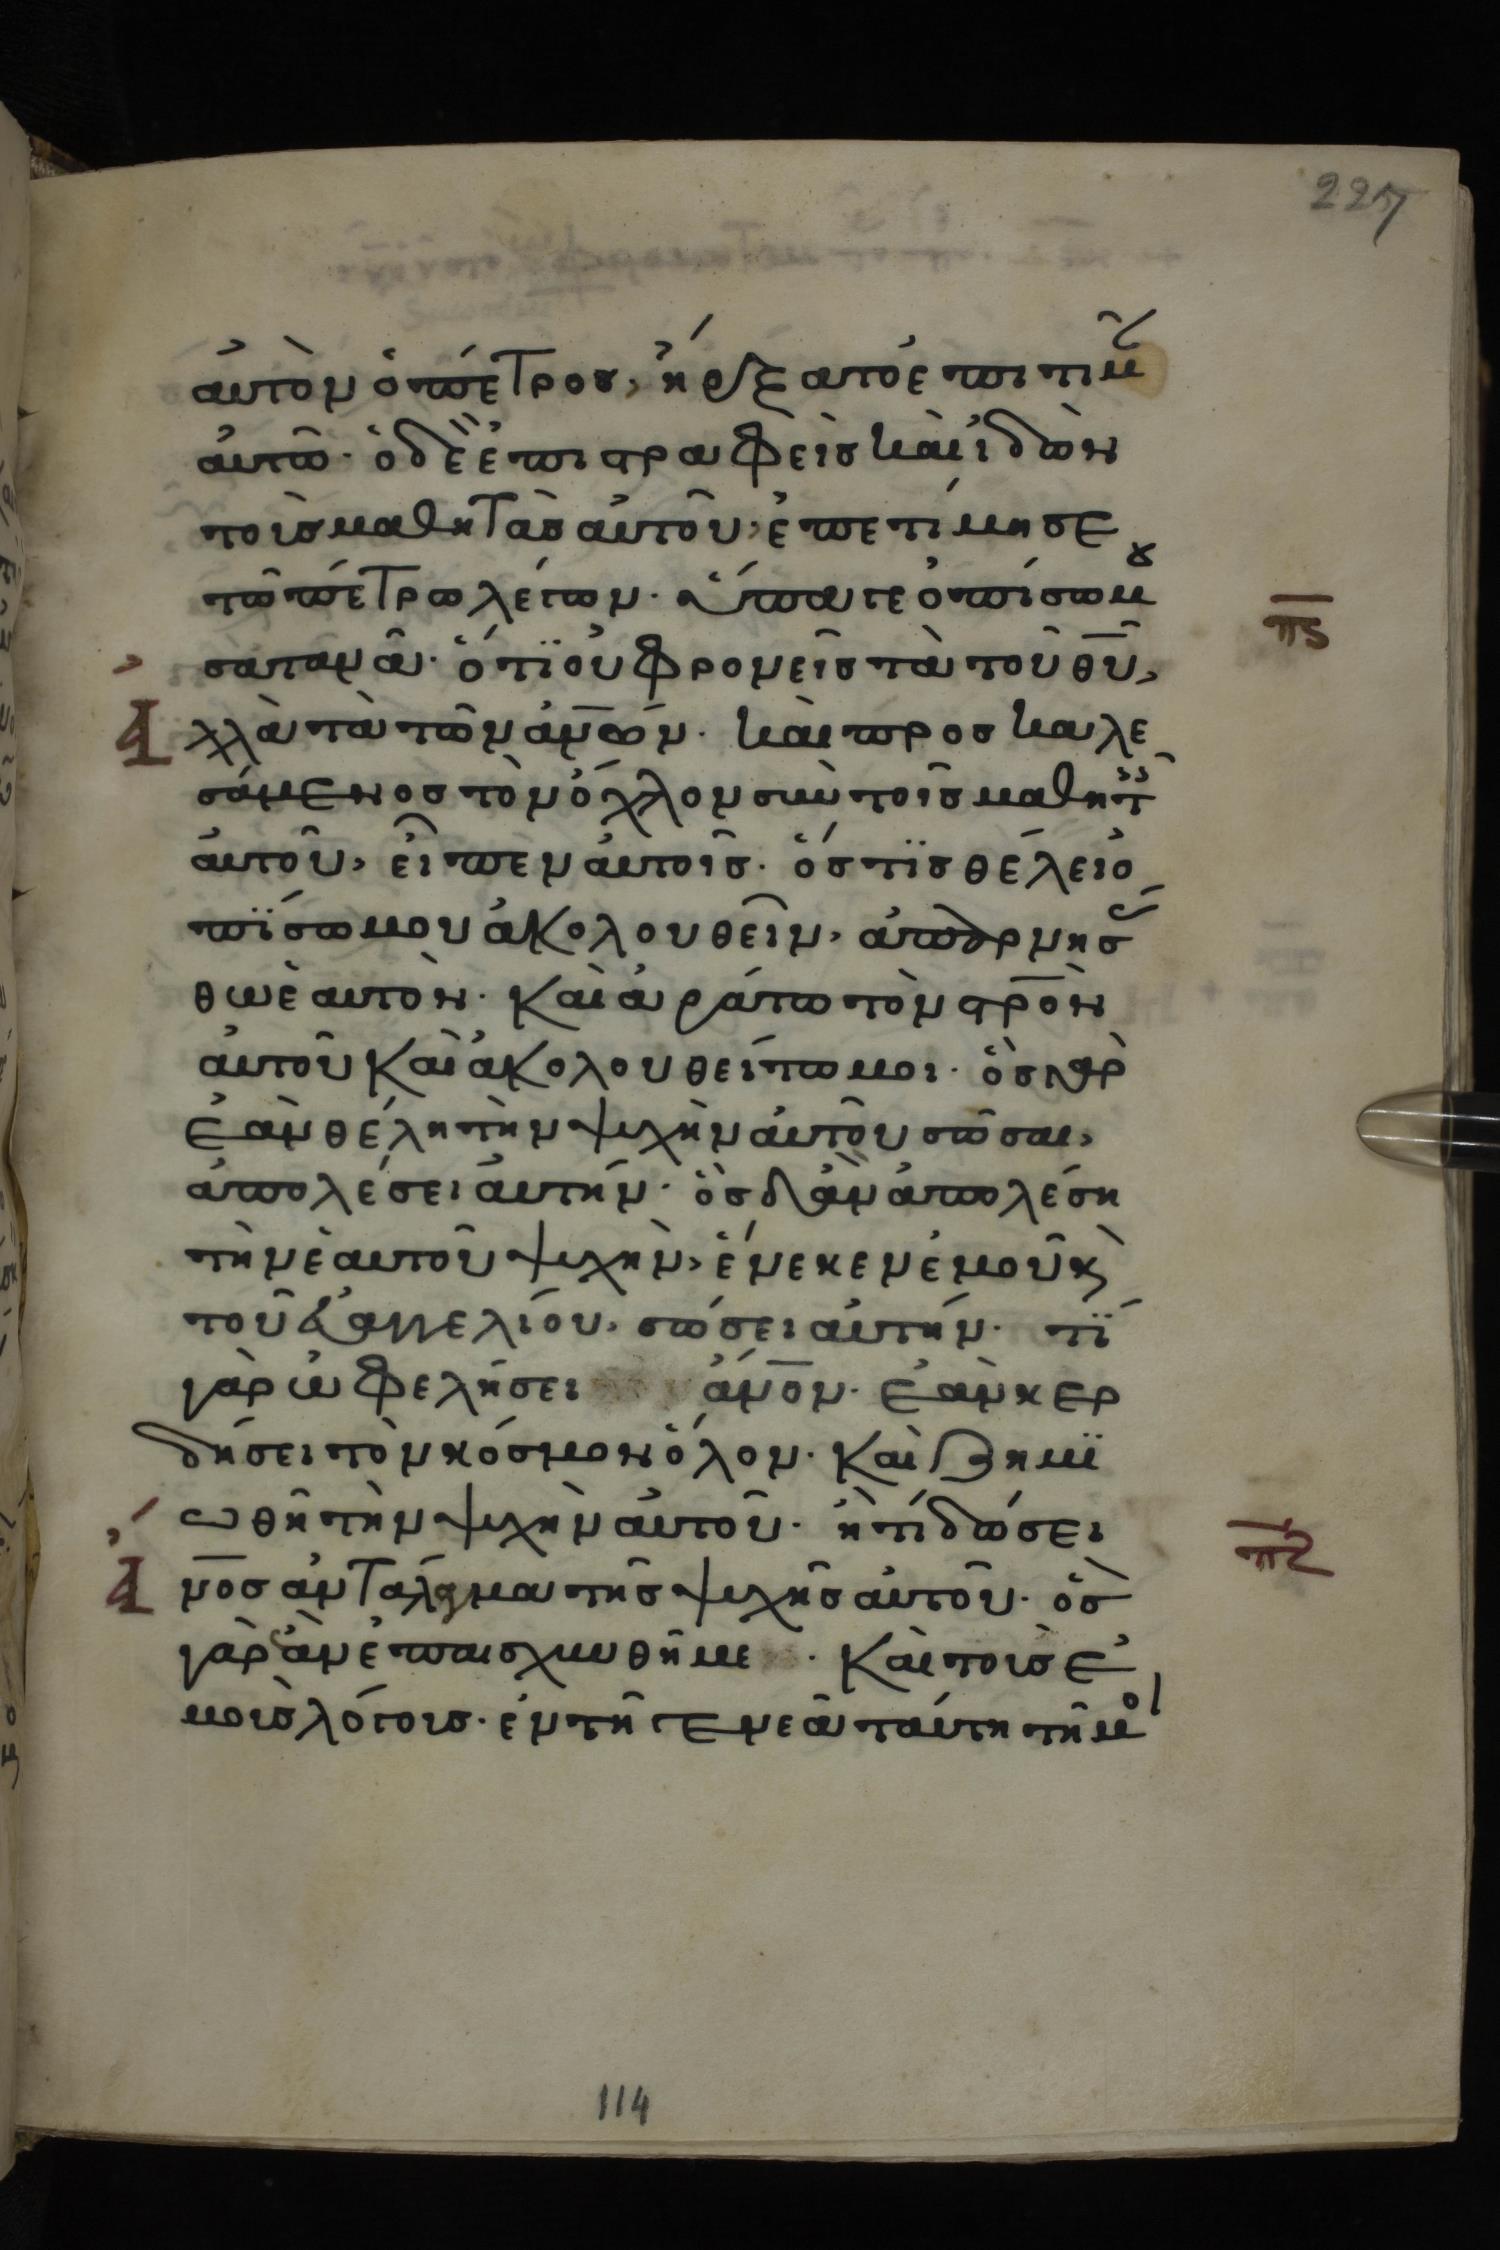 227
αὐτὸν ὁ πέτρος, ἤρξατο ἐπιτιμᾶν
αὐτῶ· ὁ δὲ ἐπιστραφεὶς καὶ ἰδὼν
τοὺς μαθητὰς αὐτοῦ, ἐπετίμησε
τῶ πέτρω λέγων· ὕπαγε ὀπίσω μου
σατανᾶ· ὅτι οὐ φρονεῖς τὰ τοῦ θυ,
πς
ἀλλὰ τὰ τῶν ἀνων· καὶ προσκαλε
σάμενος τὸν ὄχλον σὺν τοῖς μαθηταῖς
αὐτοῦ, εἶπεν αὐτοῖς· ὅστις θέλει ὀ
πίσω μου ἀκολουθεῖν, ἀπαρνησά
σθω ἑαυτὸν· καὶ ἀράτω τὸν στρον
αὐτοῦ καὶ ἀκολουθείτω μοι· ὃς γὰρ
ἐὰν θέλη τὴν ψυχὴν αὐτοῦ σῶσαι,
ἀπολέσει αὐτήν· ὃς δ ἂν ἀπολέση
τὴν ἑαυτοῦ ψυχὴν, ἕνεκεν ἐμοῦ κ
τοῦ εὐαγγελίου, σώσει αὐτήν· τί
γὰρ ὠφελήσει ἄνον· ἐὰν κερ
δήσει τὸν κόσμον ὅλον· καὶ ζημι
ωθῆ τὴν ψυχὴν αὐτοῦ· ἢ τί δώσει
πζ
ἄνος ἀντάλαγμα τῆς ψυχῆς αὐτοῦ· ὃς
γὰρ ἂν ἐπαισχυνθῆ με · καὶ τοὺς ἐ
μοὺς λόγους· ἐν τῆ γενεᾶ ταύτη τῆ μοι
114